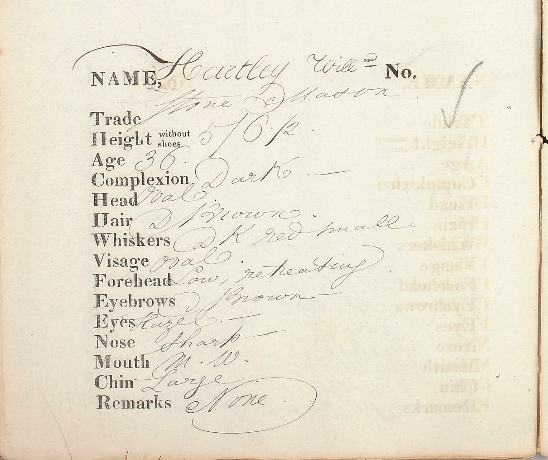 NAME, Hartley Will^m No.
Trade Stone Mason
Height without shoes 5/6 1/2
Age 36.
Complexion Dark
Head Oval
Hair D Brown
Whiskers DK red small
Visage Oval
Forehead Low, retreating
Eyebrows Brown
Eyes Hazel
Nose Sharp
Mouth M. W.
Chin Large
Remarks None.